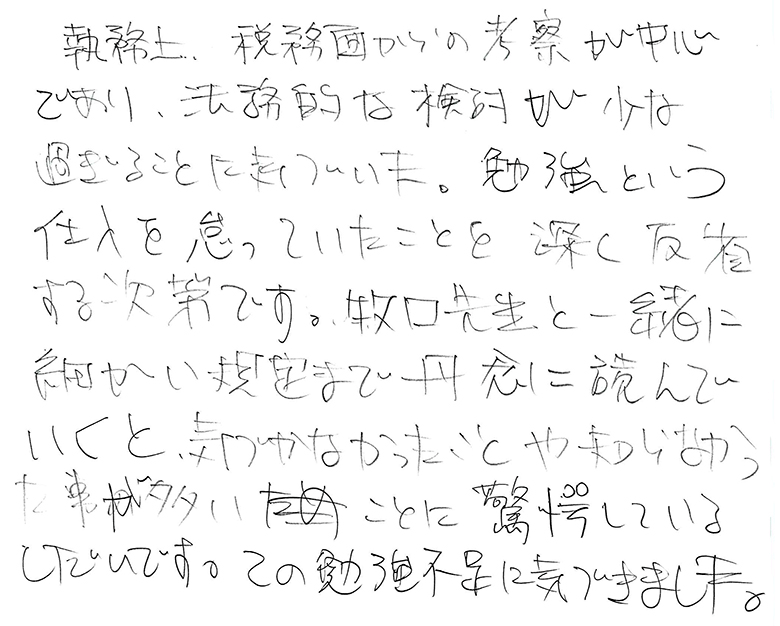 執務上、税務面からの考察が中心
であり、法務的な検討が少な
過ぎることに気づいた。勉強という
仕入を怠っていたことを深く反省
する次第です。牧口先生と一緒に
細かい規定まで丹念に読んで
いくと、気づかなかったことや知らなかっ
た事が多いことに驚愕している
しだいです。この勉強不足に気づきました。